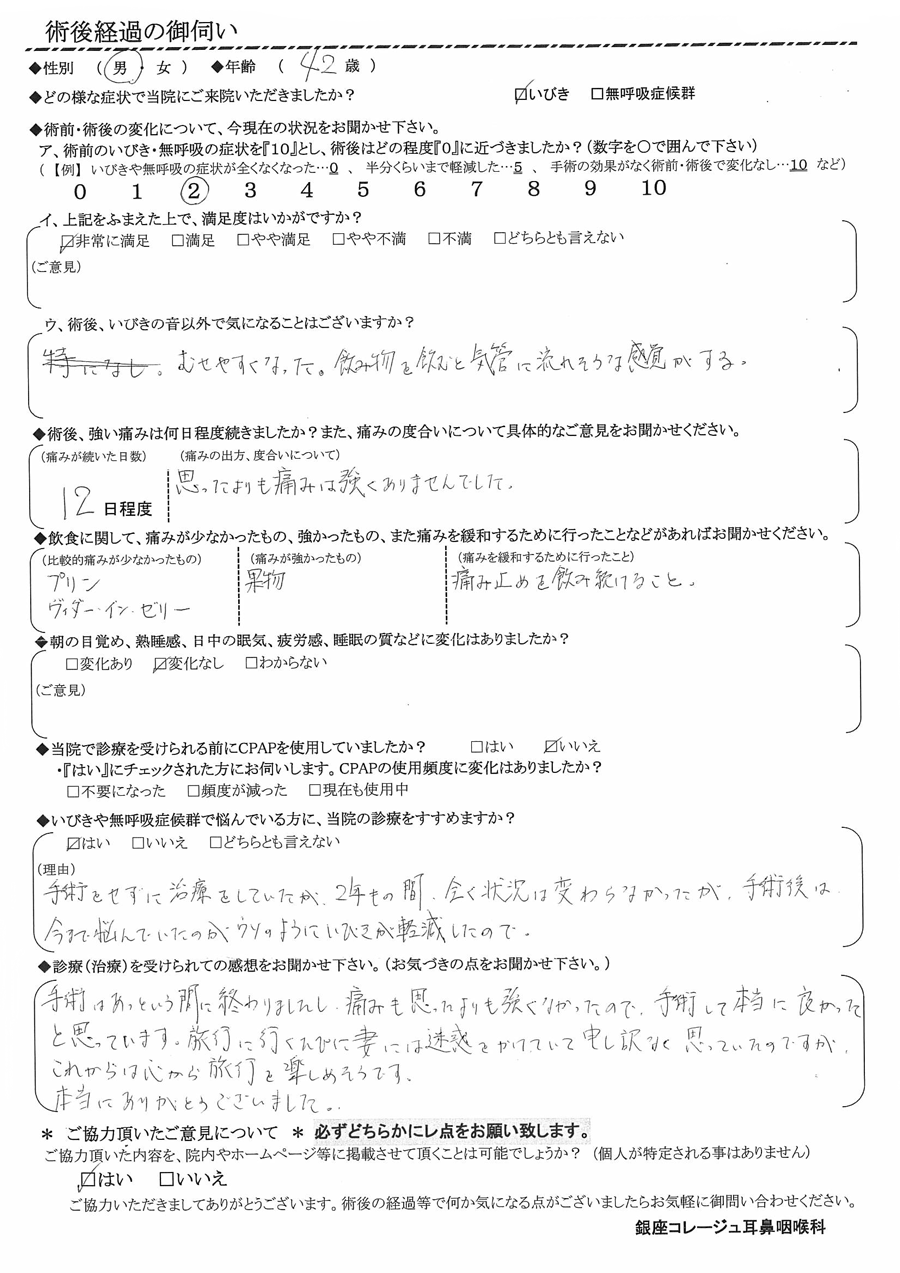 術後経過の御伺い
◆性別 ( 男 ・ 女 ) ◆年齢 ( 42 歳 )
◆どの様な症状で当院にご来院いただきましたか? ☑いびき □無呼吸症候群
◆術前・術後の変化について、今現在の状況をお聞かせ下さい。
ア、術前のいびき・無呼吸の症状を『10』とし、術後はどの程度『0』に近づきましたか?(数字を〇で囲んで下さい)
(【例】 いびきや無呼吸の症状が全くなくなった…0 、 半分くらいまで軽減した…5 、 手術の効果がなく術前・術後で変化なし…10 など)
0 1 ② 3 4 5 6 7 8 9 10
イ、上記をふまえた上で、満足度はいかがですか?
☑非常に満足 □満足 □やや満足 □やや不満 □不満 □どちらとも言えない
(ご意見)
ウ、術後、いびきの音以外で気になることはございますか?
特になし。むせやすくなった。飲み物を飲むと気管に流れそうな感覚がする。
◆術後、強い痛みは何日程度続きましたか?また、痛みの度合いについて具体的なご意見をお聞かせください。
(痛みが続いた日数) (痛みの出方、度合いについて)
12 日程度 思ったよりも痛みは強くありませんでした。
◆飲食に関して、痛みが少なかったもの、強かったもの、また痛みを緩和するために行ったことなどがあればお聞かせください。
(比較的痛みが少なかったもの) (痛みが強かったもの) (痛みを緩和するために行ったこと)
プリン 果物 痛み止めを飲み続けること。
ヴィダー・イン・ゼリー
◆朝の目覚め、熟睡感、日中の眠気、疲労感、睡眠の質などに変化はありましたか?
□変化あり ☑変化なし □わからない
(ご意見)
◆当院で診療を受けられる前にCPAPを使用していましたか? □はい ☑いいえ
・『はい』にチェックされた方にお伺いします。CPAPの使用頻度に変化はありましたか?
□不要になった □頻度が減った □現在も使用中
◆いびきや無呼吸症候群で悩んでいる方に、当院の診療をすすめますか?
☑はい □いいえ □どちらとも言えない
(理由)
手術をせずに治療をしていたが、2年もの間、全く状況は変わらなかったが、手術後は、
今まで悩んでいたのがウソのようにいびきが軽減したので。
◆診療(治療)を受けられての感想をお聞かせ下さい。(お気づきの点をお聞かせ下さい。)
手術はあっという間に終わりましたし、痛みも思ったよりも強くなかったので、手術して本当に良かった
と思っています。旅行に行くたびに妻には迷惑をかけていて申し訳なく思っていたのですが、
これからは心から旅行を楽しめそうです。
本当にありがとうございました。
＊ ご協力頂いたご意見について ＊ 必ずどちらかにレ点をお願い致します。
ご協力頂いた内容を、院内やホームページ等に掲載させて頂くことは可能でしょうか? (個人が特定される事はありません)
☑はい □いいえ
ご協力いただきましてありがとうございます。術後の経過等で何か気になる点がございましたらお気軽に御問い合わせください。
銀座コレージュ耳鼻咽喉科